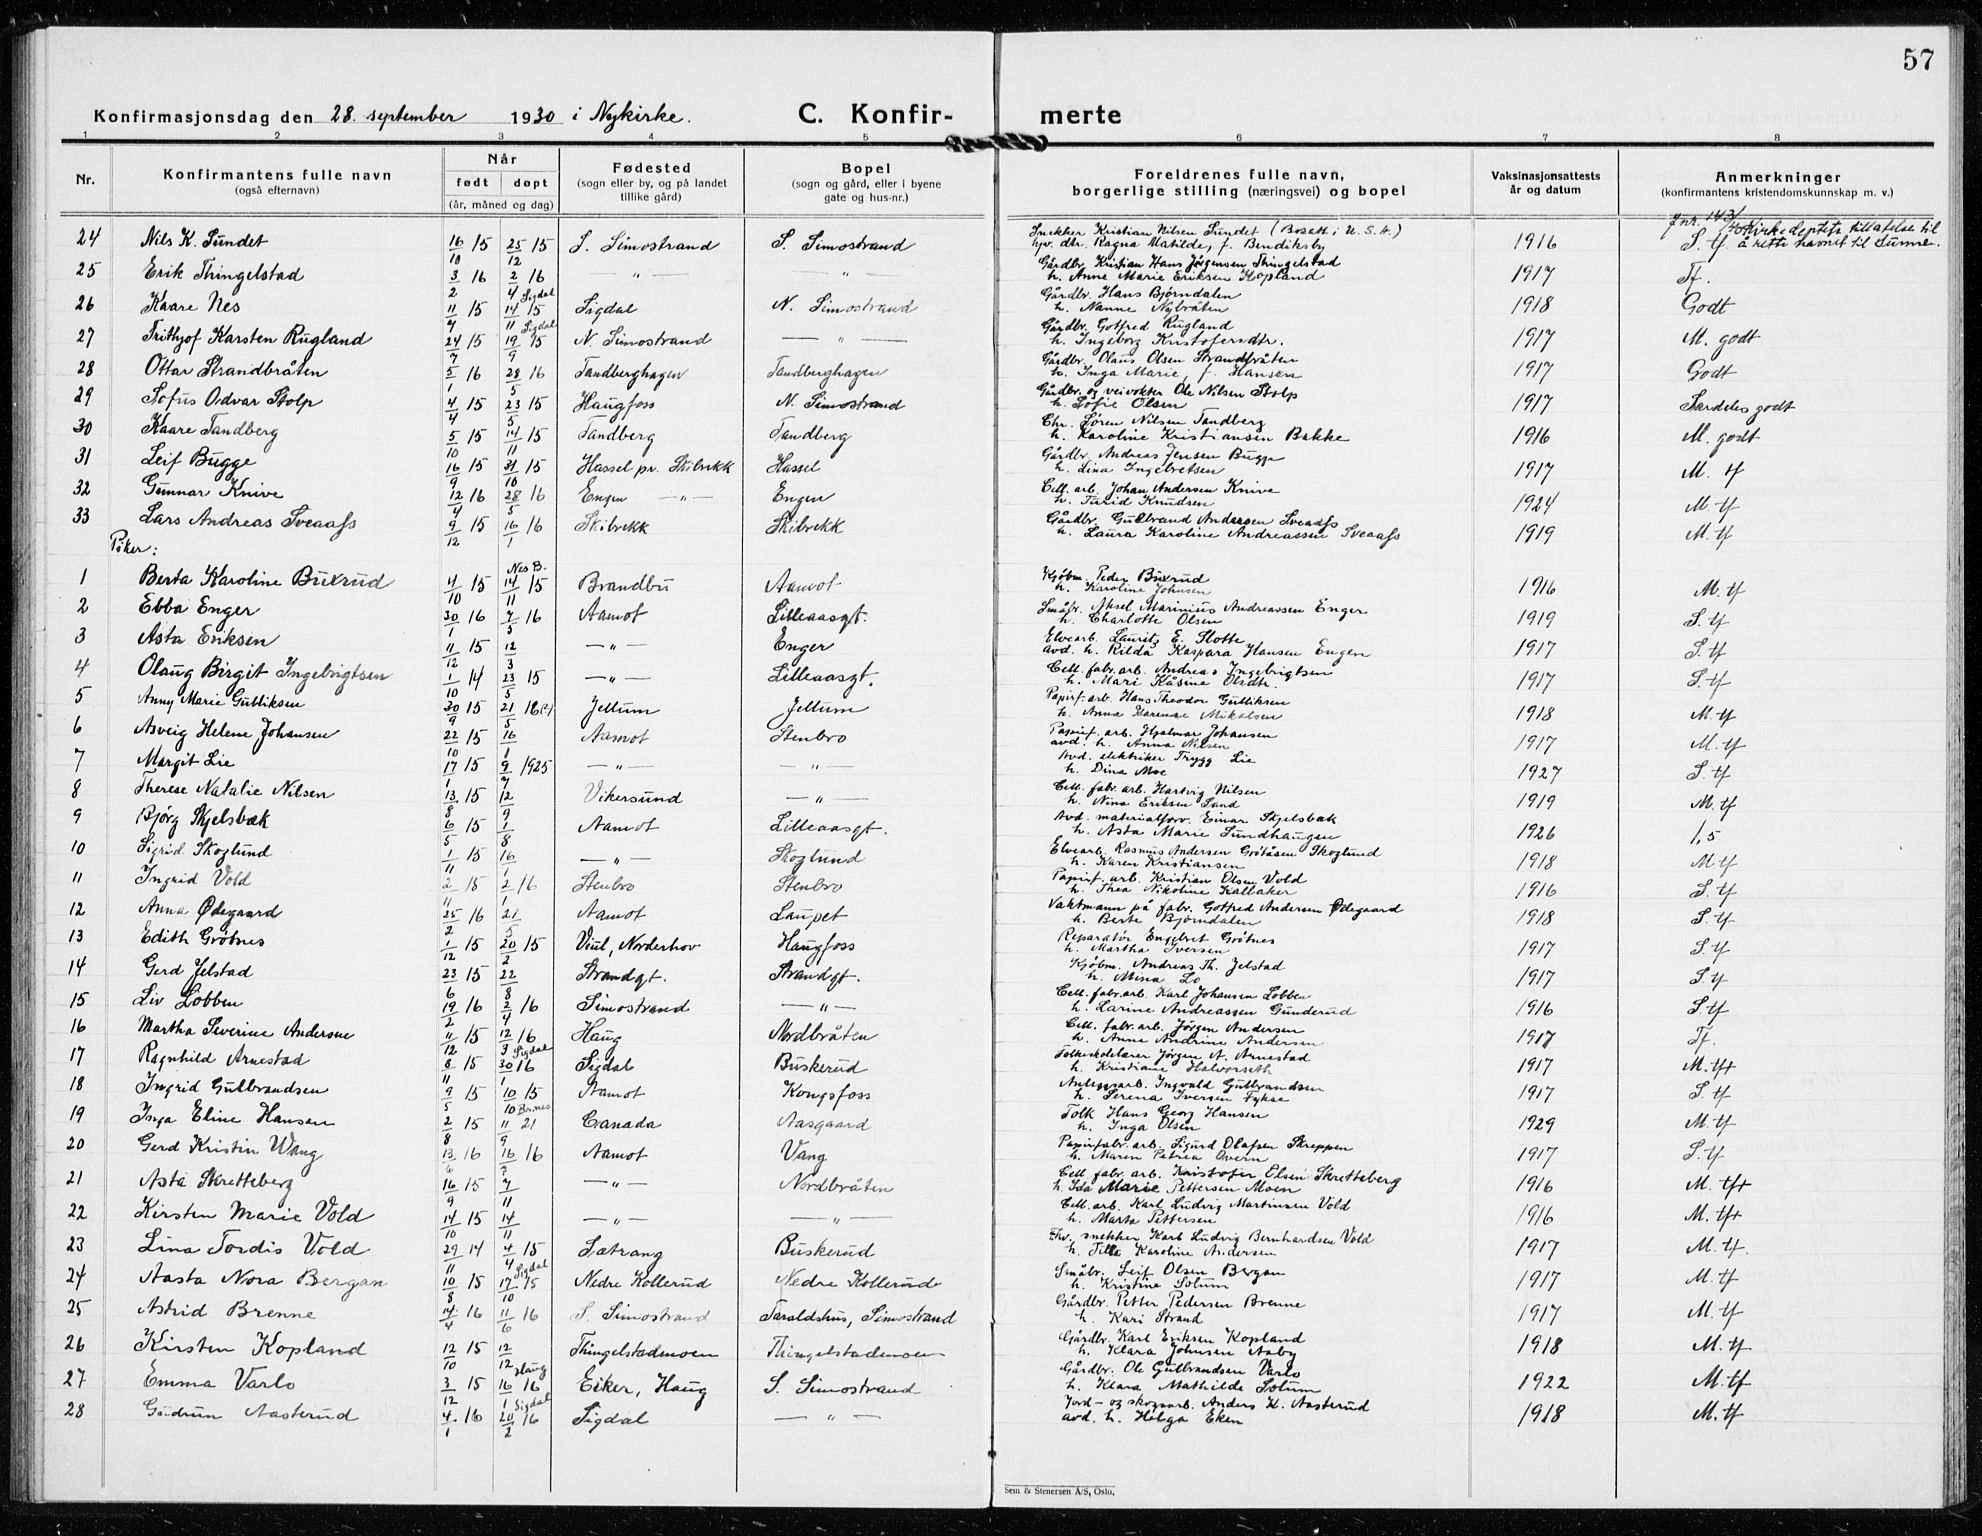 57
Konfirmasjonsdag den 28. september 1930 i Nykirke. C. Konfir- merte
1 2 3 4 5 6 7 8
Nr. Konfirmantens fulle navn (også efternavn) Når født døpt (år, måned og dag) Fødested (sogn eller by, og på landet tillike gård) Bopel (sogn og gård, eller i byene gate og hus-nr.) Foreldrenes fulle navn, borgerlige stilling (næringsvei) og bopel Vaksinasjonsattests år og datum Anmerkninger (konfirmantens kristendomskunnskap m. v.)
24 Nils K. Sundet 16/10 15 25/12 15 S. Simostrand S. Simostrand Snekker Kristian Nilsen Sundet (Bosatt i U.S.A.) 1916 S. tf
hv. dtr. Ragna Matilde, f. Bendiksby å rette navnet til Sunne.
25 Erik Thingelstad 3/2 16 2/4 16 — " — — " — Gårdbr. Kristian Hans Jørgensen Thingelstad 1917 Tf.
h. Anne Marie Eriksen Kopland
26 Kaare Nes 11/4 15 Sigdal 14/11 15 Sigdal N. Simostrand Gårdbr. Hans Bjørndalen 1918 Godt
h. Nanne Nybråten
27 Frithjof Karsten Rugland 24/7 15 Sigdal 19/9 15 N. Simostrand — " — Gårdbr. Gotfred Rugland 1917 M. godt
h. Ingeborg Kristofersdtr.
28 Ottar Strandbråten 5/1 16 28/5 16 Tandberghagen Tandberghagen Gårdbr. Olaus Olsen Strandbråten 1917 Godt
h. Inga Marie, f. Hansen
29 Sofus Odvar Stolp 4/4 15 23/5 15 Haugfoss N. Simostrand Gårdbr. og veivokter Ole Nilsen Stolp 1917 Særdeles godt
h. Sofie Olsen
30 Kaare Tandberg 5/10 15 14/11 15 Tandberg Tandberg Chr. Søren Nilsen Tandberg 1916 M. godt
h. Karoline Kristiansen Bakke
31 Leif Bugge 16/9 15 31/10 15 Hassel pr. Skibrekk Hassel Gårdbr. Andreas Jensen Bugge 1917 M. tf
h. Lina Ingebretsen
32 Gunnar Knive 12/4 16 28/5 16 Engen — " — Engen Cell. arb. Johan Andersen Knive 1924 M. tf
h. Turid Knudsen
33 Lars Andreas Sveaass 9/12 15 16/1 16 Skibrekk Skibrekk Gårdbr. Gulbrand Andersen Sveaass 1919 M. tf
h. Laura Karoline Andreassen Sveaass
Piker:
1 Berta Karoline Buxrud 4/10 15 Nes B. 14/11 15 Brandbu Aamot Kjøbm. Peder Buxrud 1916 M. tf
h. Karoline Johnsen
2 Ebba Enger 30/1 16 7/5 16 Aamot Lilleaasgt. Småbr. Aksel Marinius Andreassen Enger 1919 S. tf
h. Charlotte Olsen
3 Asta Eriksen 11/12 15 12/3 — " — Enger Elvearb. Laurits E. Slotte 1917 S. tf
avd. h. Rilda Kaspara Hansen Engen
4 Olaug Birgit Ingebrigtsen 1/10 14 23/5 15 — " — Lilleaasgt. Cell. fabr. arb. Andreas Ingebrigtsen 1917 S. tf
h. Mari Kasine Olsdtr.
5 Anny Marie Gulliksen 30/9 15 21/5 16 (?) Jellum Jellum Papirf. arb. Hans Theodor Gulliksen 1918 M. tf
h. Anna Karense Mikalsen
6 Asveig Helene Johansen 22/10 15 16/1 Aamot Stenbro Papirf. arb. Hjalmar Johansen 1917 M. tf
avd. h. Anna Nilsen
7 Margit Lie 17/1 15 9/7 1925 — " — — " — Avd. elektriker Trygg Lie 1927 S. tf
h. Dina Moe
8 Therese Natalie Nilsen 13/8 15 12/9 Vikersund — " — Cell. fabr. arb. Hartvig Nilsen 1919 M. tf
h. Nina Eriksen Sand
9 Bjørg Skjelsbæk 6/5 15 1/8 Aamot Lilleaasgt. Avd. materialforv. Einar Skjelsbæk 1926 1,5
h. Asta Marie Sundhaugen
10 Sigrid Skoglund 1/11 15 16/1 — " — Skoglund Elvearb. Rasmus Andersen Gråtåsen Skoglund 1918 M. tf
h. Karen Kristiansen
11 Ingrid Vold 2/11 15 2/1 16 Stenbro Stenbro Papirf. arb. Kristian Olsen Vold 1916 S. tf
h. Thea Nikoline Kallaker
12 Anna Ødegaard 25/2 16 21/5 Aamot Laupet Vaktmann på fabr. Gotfred Andersen Ødegaard 1918 S. tf
h. Berte Bjørndalen
13 Edith Grøtnes 1/12 15 20/2 15 Viul, Norderhov Haugfoss Reparatør Engebret Grøtnes 1917 S. tf
h. Martha Iversen
14 Gerd Jelstad 23/6 15 22/8 Strandgt. Strandgt. Kjøbm. Andreas Th. Jelstad 1917 S. tf
h. Mina Lo
15 Liv Lobben 19/2 16 2/4 16 Simostrand — " — Cell. fabr. arb. Karl Johansen Lobben 1916 S. tf
h. Larine Andreassen Gunderud
16 Martha Severine Andersen 11/12 15 12/3 16 Haug Nordbråten Cell. fabr. arb. Jørgen Andersen 1917 Tf.
h. Anne Andrine Andersen
17 Ragnhild Arnestad 8/11 15 Sigdal 30/1 16 Sigdal Buskerud Folkeskolelærer Jørgen A. Arnestad 1917 M. tf+
h. Kristiane Halvorseth
18 Ingrid Gulbrandsen 9/5 15 10/10 15 Aamot Kongsfoss Anleggsarb. Ingvald Gulbrandsen 1917 S. tf
h. Serena Iversen Fykse
19 Inga Eline Hansen 2/8 15 11/9 21 Canada Aasgaard Tolk Hans Georg Hansen 1929 M. tf
h. Inga Olsen
20 Gerd Kristin Wang 13/6 16 16/7 16 Aamot Vang Papirfabr. arb. Sigurd Olafsen Skreppen 1917 S. tf
h. Maren Petrea Overn
21 Asta Skretteberg 16/9 15 7/11 — " — Nordbråten Cell. fabr. arb. Kristofer Olsen Skretteberg 1916 M. tf+
h. Ida Marie Pettersen Moen
22 Kirsten Marie Vold 14/10 15 14/11 — " — — " — Cell. arb. Karl Ludvig Martinsen Vold 1916 M. tf+
h. Marta Pettersen
23 Lina Tordis Vold 29/11 14 4/4 15 Sætrang Buskerud Fhv. snekker Karl Ludvig Bernhardsen Vold 1917 M. tf.
h. Tilla Karoline Andersen
24 Aasta Nora Bergan 10/8 15 Sigdal 17/10 15 Nedre Kollerud Nedre Kollerud Småbr. Leif Olsen Bergan 1917 M. tf
h. Kristine Solum
25 Astrid Brenne 14/4 16 11/6 16 S. Simostrand Taraldshus, Simostrand Gårdbr. Petter Pedersen Brenne 1917 M. tf
h. Kari Strand
26 Kirsten Kopland 12/10 15 12/12 Thingelstadmoen Thingelstadmoen Gårdbr. Karl Eriksen Kopland 1918 M. tf
h. Klara Johnsen Aaby
27 Emma Varlo 3/12 15 Haug 16/1 16 Eiker, Haug S. Simostrand Gårdbr. Ole Gulbrandsen Varlo 1922 M. tf
h. Klara Mathilde Solum
28 Gudrun Aasterud 4/1 16 Sigdal 20/2 16 Sigdal — " — Jord- og skogsarb. Anders K. Aasterud 1918 M. tf
avd. h. Helga Eken
Sem & Stenersen A/S, Oslo.